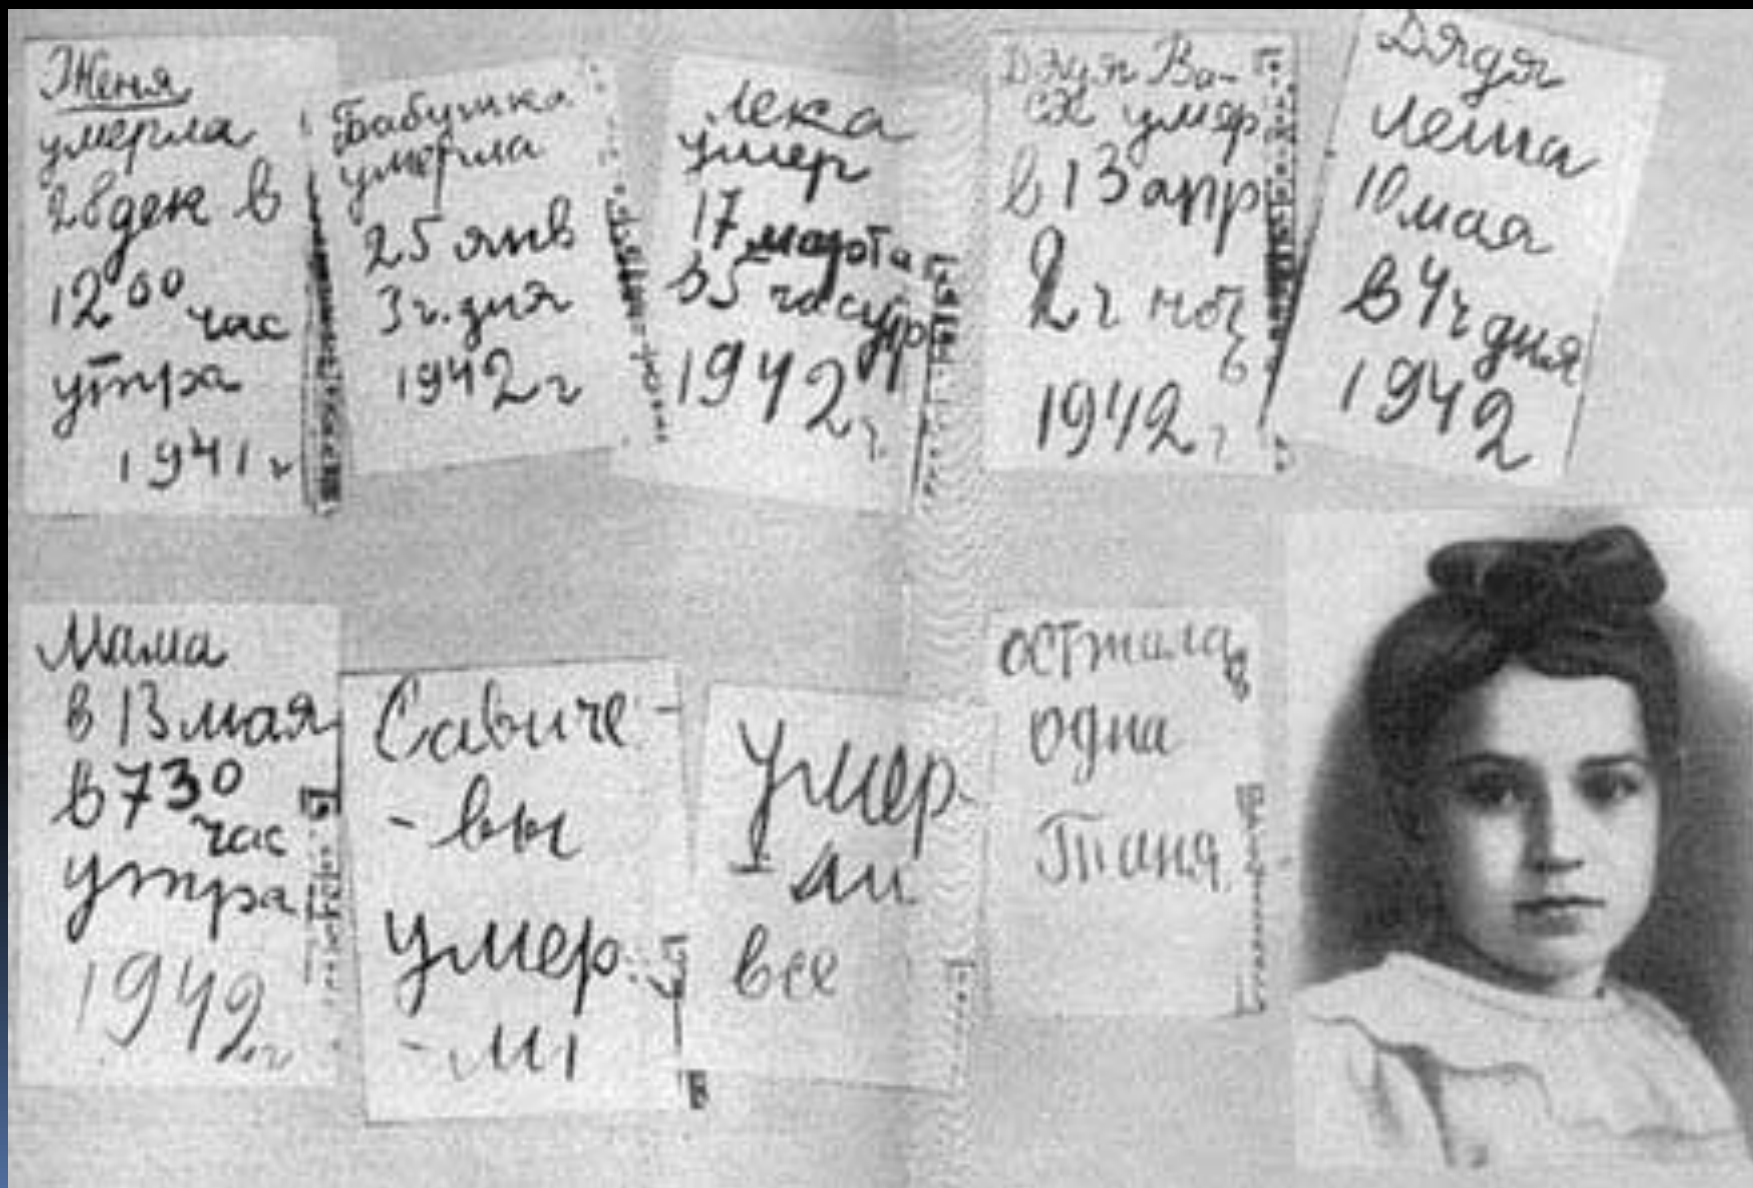 Женя
умерла
28 дек в
12 00 час
утра
1941 г
Бабушка
умерла
25 янв
3 ч. дня
1942 г
Лека
умер
17 марта
в 5 час утр
1942 г
Дядя Ва-
ся умер
в 13 апр
2 ч ночь
1942 г
Дядя
Леша
10 мая
в 4 ч дня
1942
Мама
в 13 мая
в 7 30
час
утра
1942 г
Савиче-
-вы
умер
-ли
Умер-
-ли
все
осталась
одна
Таня